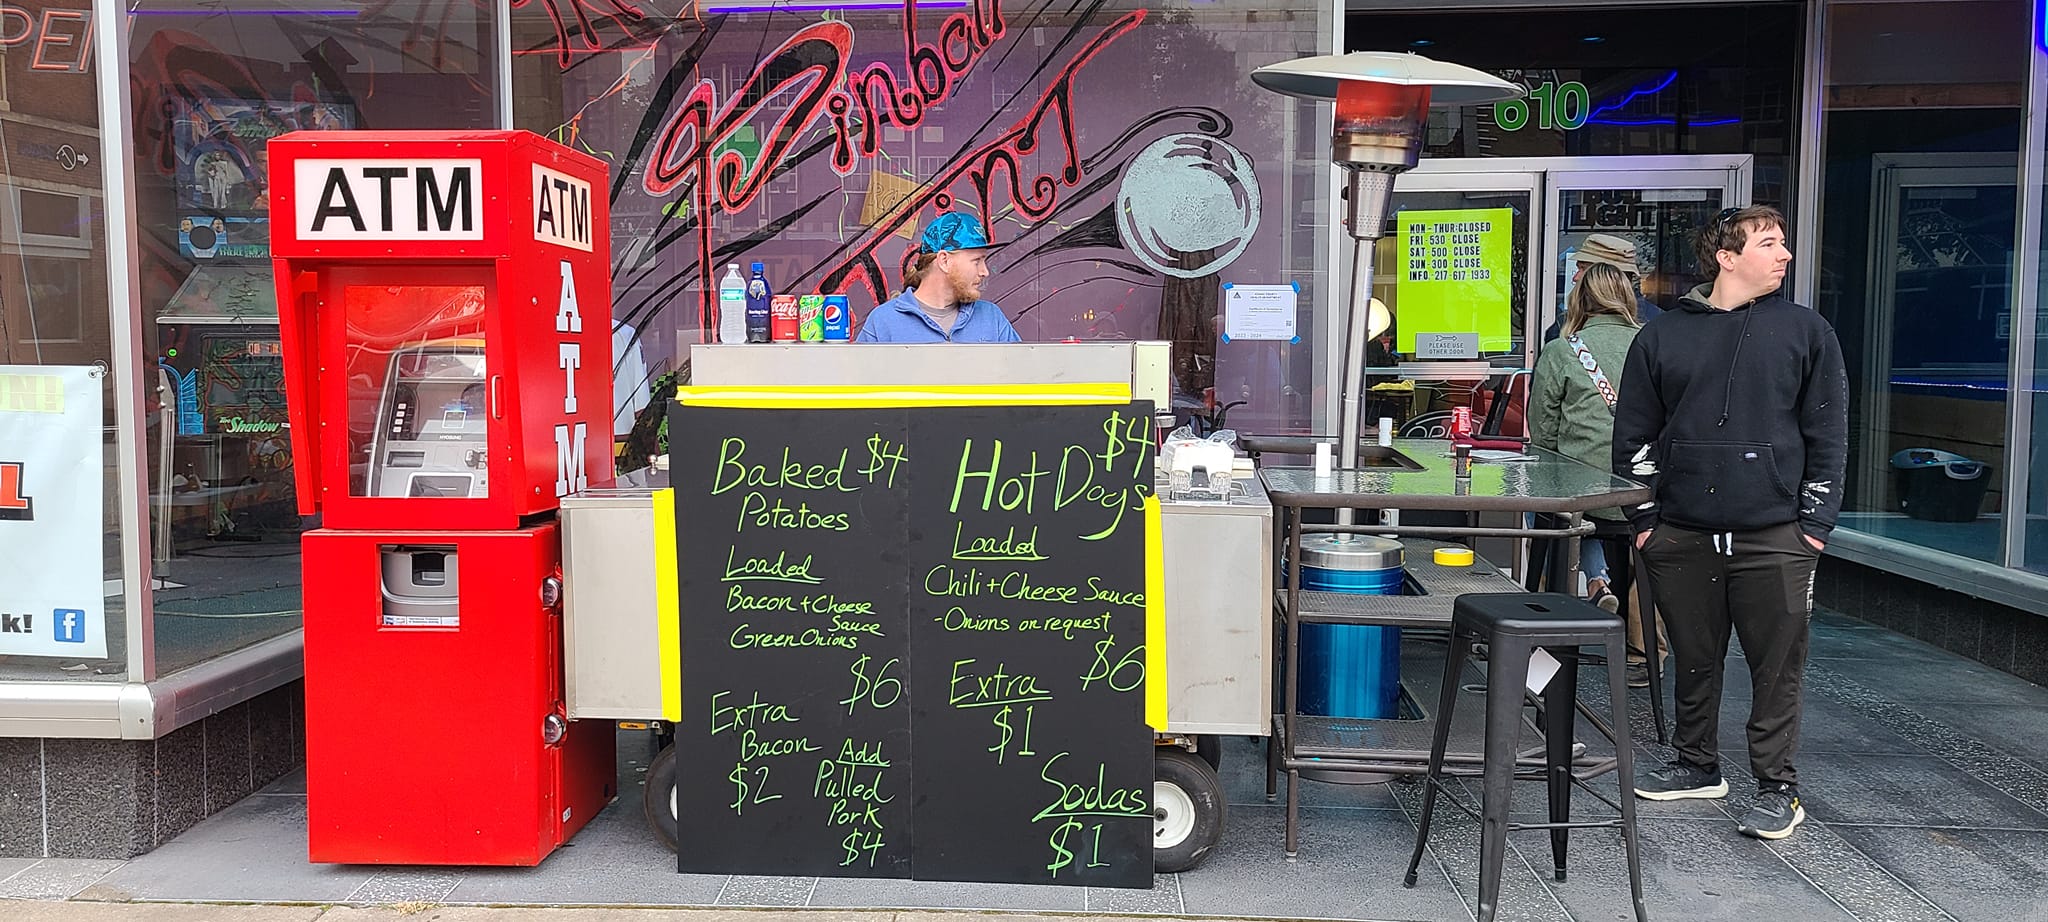 PEN
ATM
ATM
ATM
Pinball
Joint
610
BUD
LIGHT
MON - THUR:CLOSED
FRI- 530- CLOSE
SAT- 500- CLOSE
SUN- 300- CLOSE
INFO -217-617-1933
PLEASE USE
OTHER DOOR
2023 - 2024
Coca-Cola
pepsi
The Shadow
HYOSUNG
k!
f
Baked $4
Potatoes
Loaded
Bacon + Cheese
Sauce
Green Onions
$6
Extra
Bacon
$2
Add
Pulled
Pork
$4
$4
Hot Dogs
Loaded
Chili + Cheese Sauce
- Onions on request
$6
Extra
$1
Sodas
$1